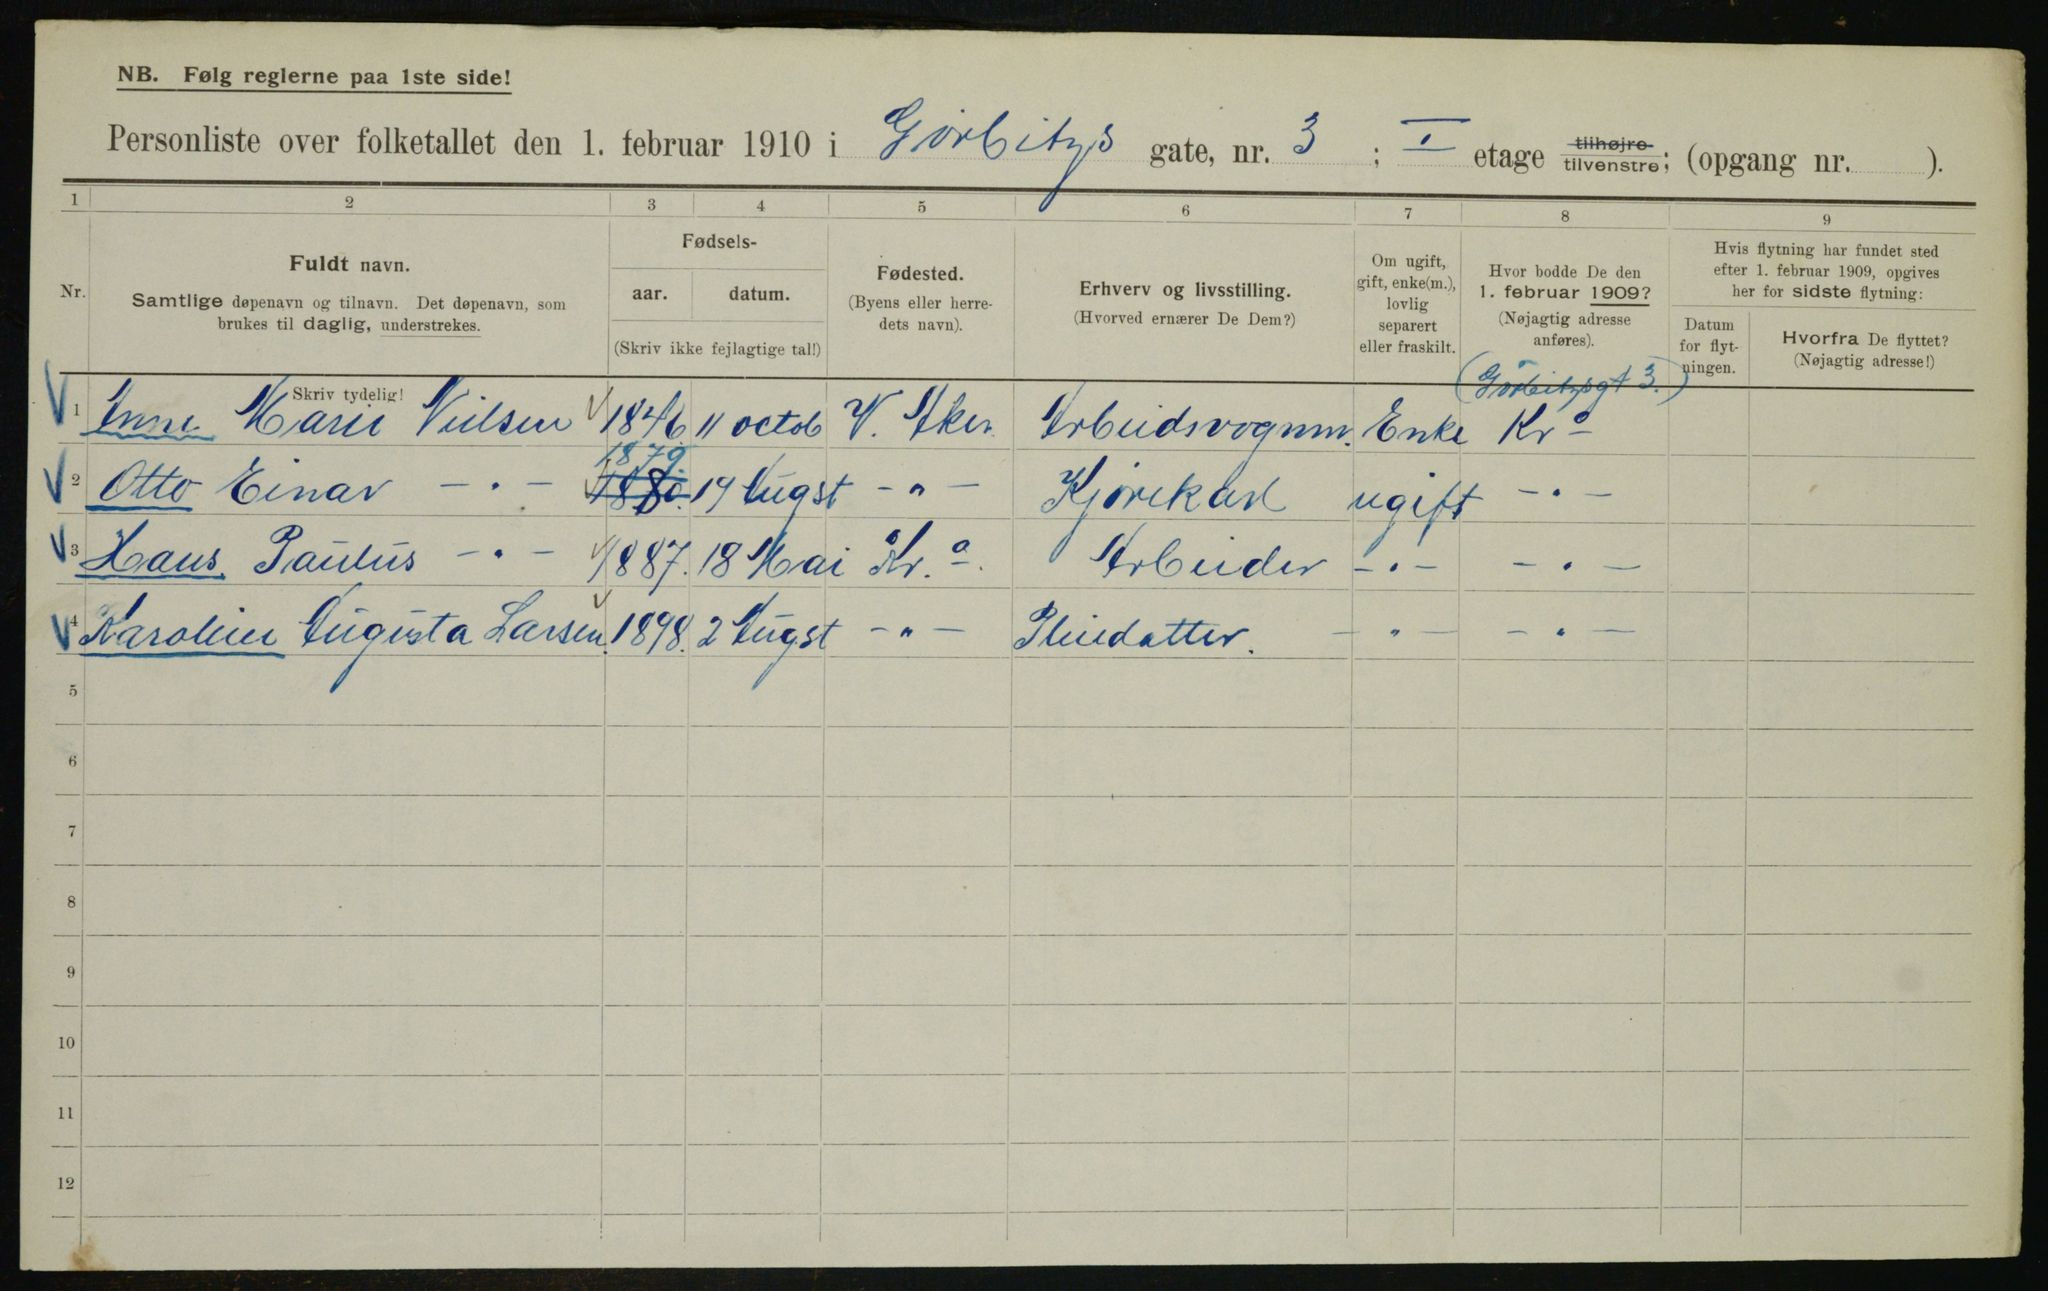 NB. Følg reglerne paa 1ste side!
Personliste over folketallet den 1. februar 1910 i Gørbitzs gate, nr. 3 ; I. etage tilhøjre tilvenstre; (opgang nr. ).
1 2 3 4 5 6 7 8 9
Nr.
Fuldt navn.
Samtlige døpenavn og tilnavn. Det døpenavn, som
brukes til daglig, understrekes.
Fødsels-
aar. datum.
(Skriv ikke fejlagtige tal!)
Fødested.
(Byens eller herre-
dets navn).
Erhverv og livsstilling.
(Hvorved ernærer De Dem?)
Om ugift,
gift, enke(m.),
lovlig
separert
eller fraskilt.
Hvor bodde De den
1. februar 1909?
(Nøjagtig adresse
anføres).
Hvis flytning har fundet sted
efter 1. februar 1909, opgives
her for sidste flytning:
Datum
for flyt-
ningen.
Hvorfra De flyttet?
(Nøjagtig adresse!)
Skriv tydelig!
(Gørbitzsgt 3.)
1 Anne Marie Nielsen 1846 11 octob V. Aker Arbeidsvognm. Enke Kra
1879
2 Otto Einar - " - 1880. 19 Augst - " - Kjørekarl ugift - " -
3 Hans Paulus - " - 1887. 18 Mai Kr.a. Arbeider - " - - " -
4 Karoline Augusta Larsen 1898. 2 Augst - " - Pleiedatter. - " - - " -
5
6
7
8
9
10
11
12